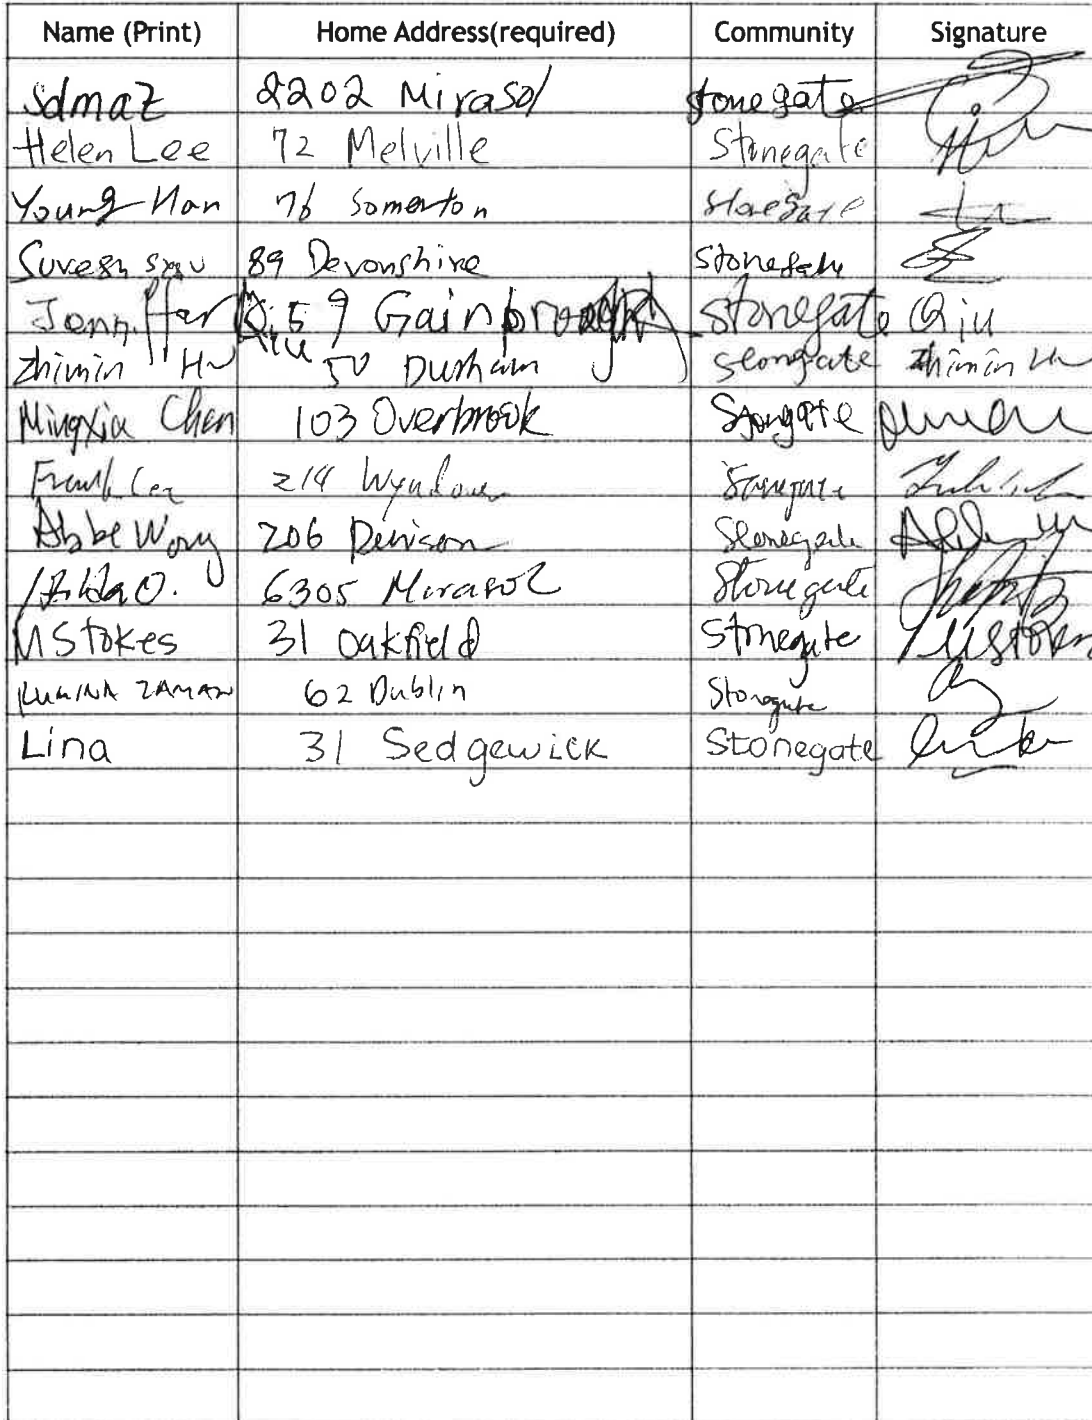 Name (Print) Home Address(required) Community Signature
Solmaz 2202 Mirasol stonegate
Helen Lee 72 Melville Stonegate
Young Han 76 Somerton Stonegate
Suresh 89 Devonshire Stonegate
Jenniffer Qiu 59 Gainbrough stonegate Qiu
Zhimin Hu 50 Durham Stongate Zhimin Hu
Mingxia Chen 103 Overbrook Stongate
Frank Lee 214 Wyndover Stonegate
Abbe Wong 206 Denison Stonegate
O. 6305 Mirasol Stonegate
M Stokes 31 Oakfield Stonegate MStokes
ZAMAN 62 Dublin Stonegate
Lina 31 Sedgewick Stonegate